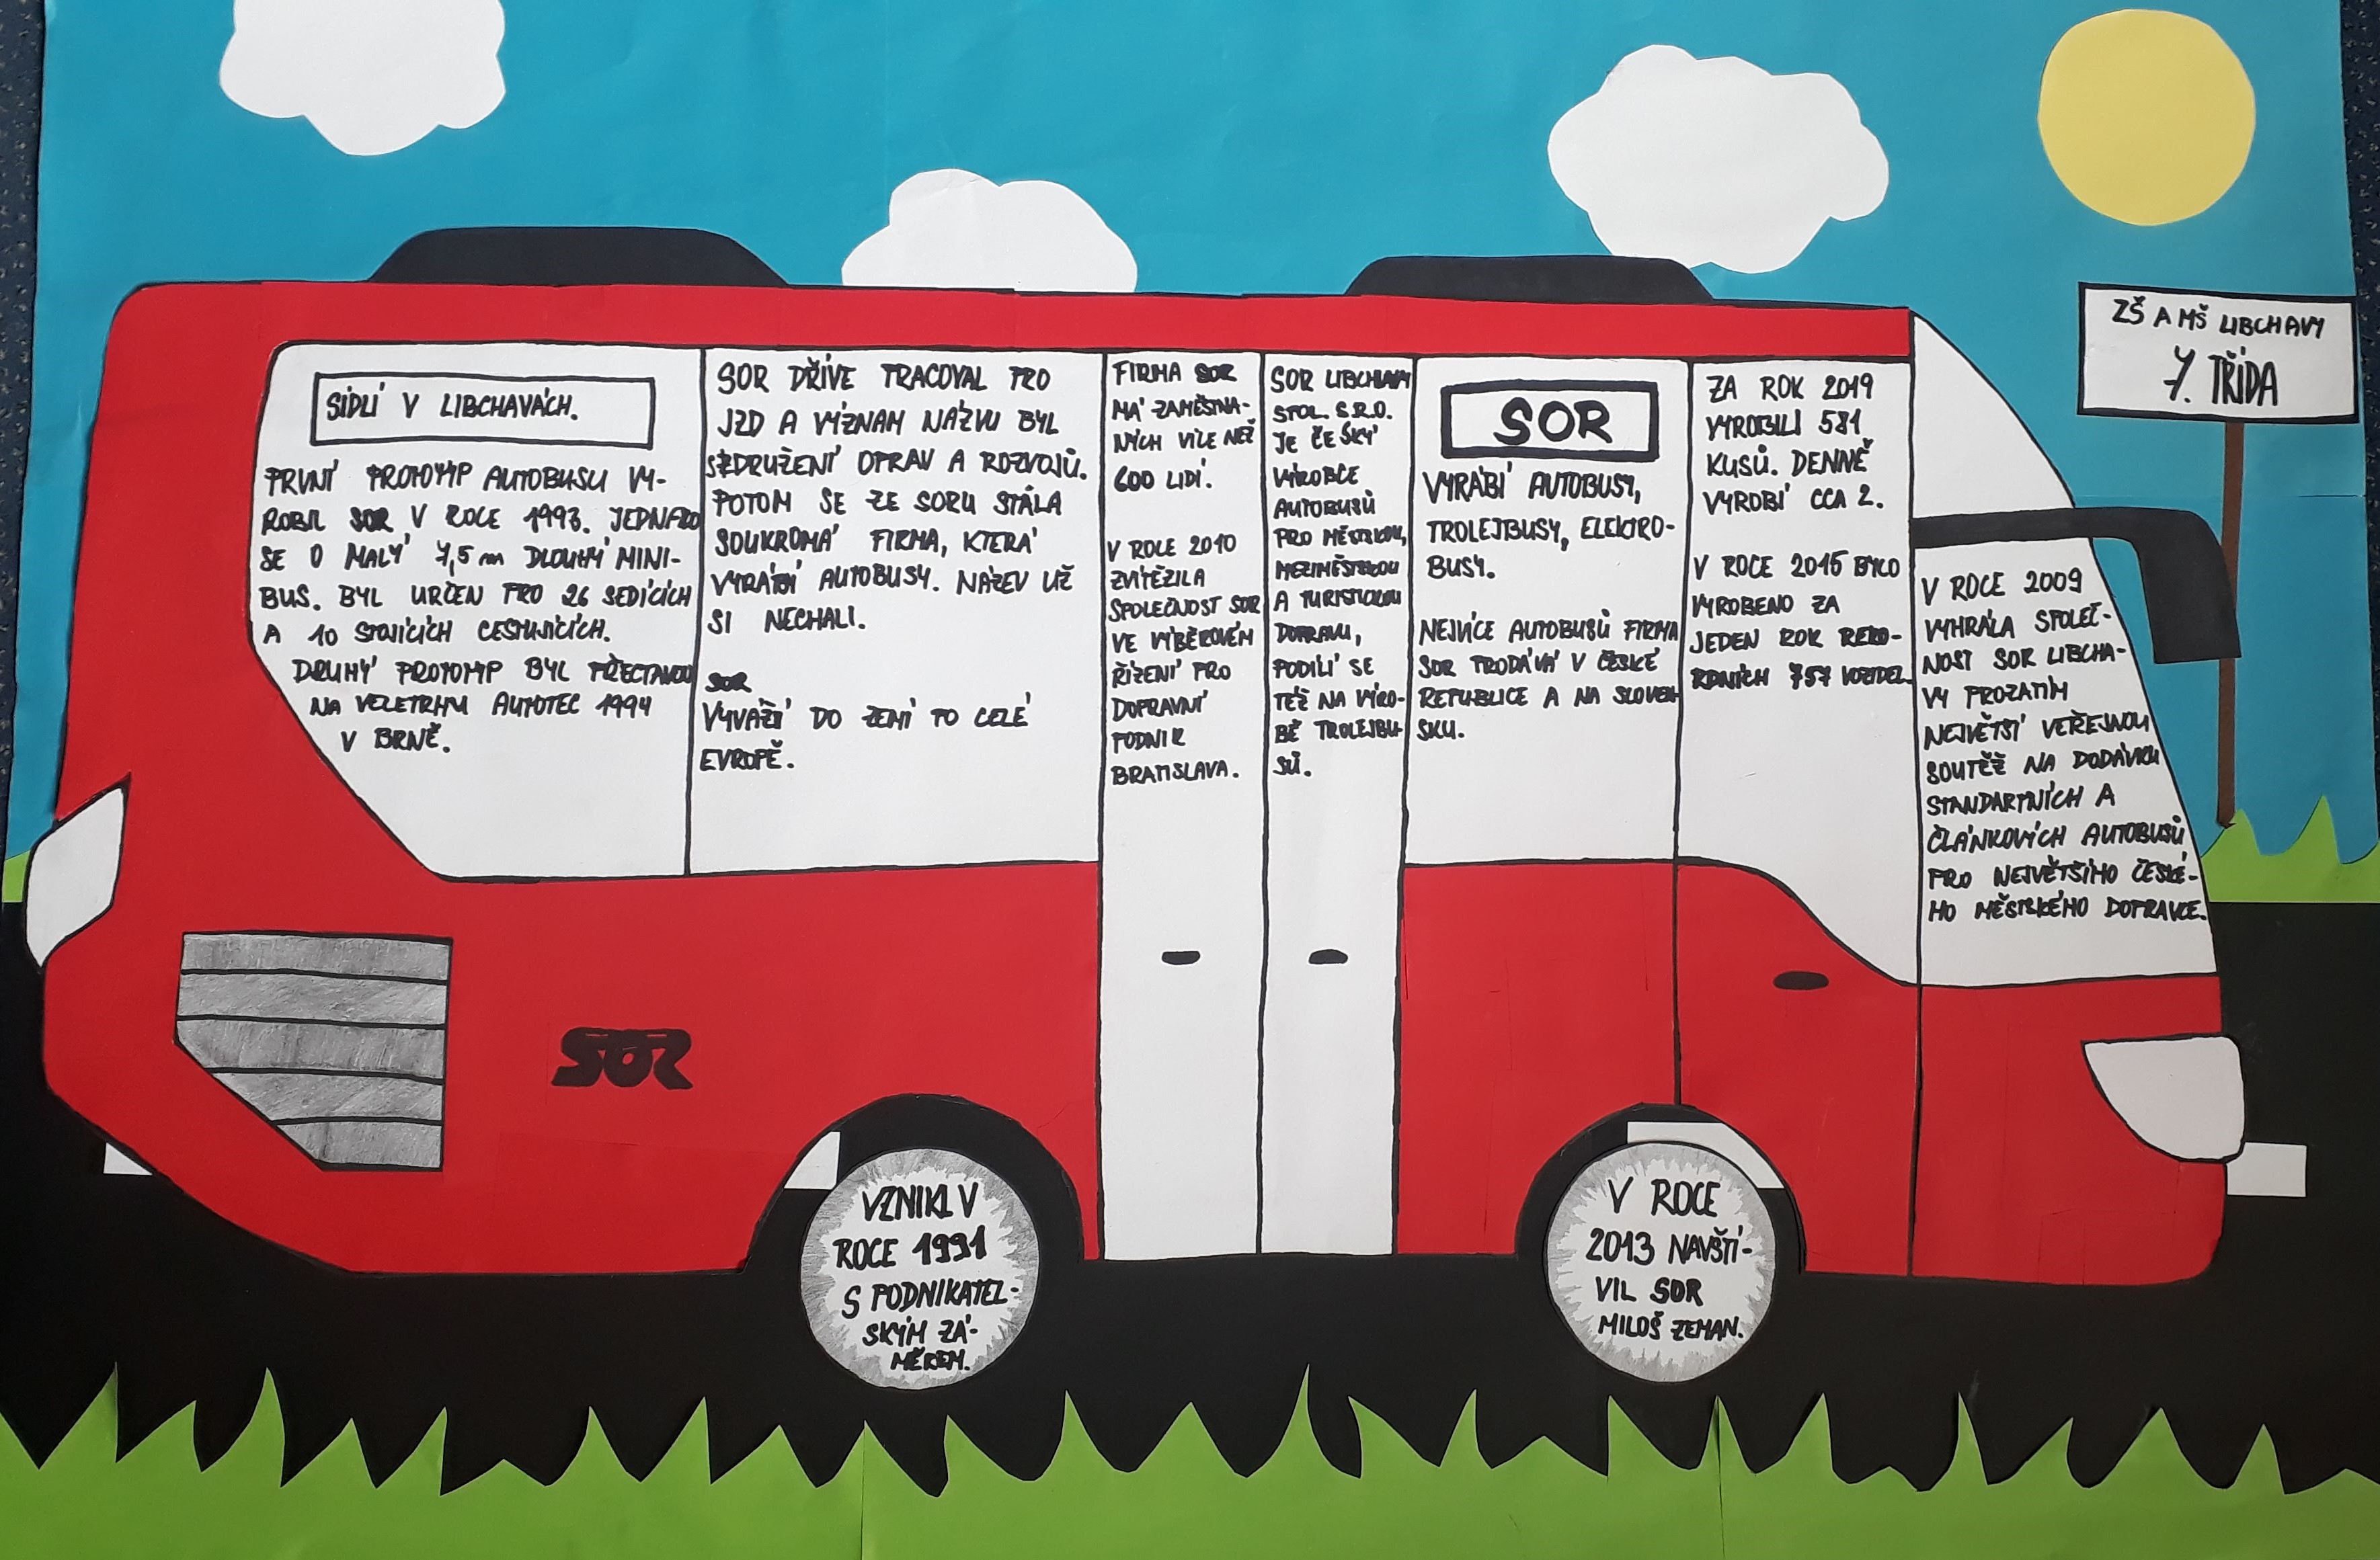 ZŠ A MŠ LIBCHAVY
7. TŘÍDA
SÍDLÍ V LIBCHAVÁCH.
PRVNÍ PROTOTYP AUTOBUSU VY-
ROBIL SOR V ROCE 1993. JEDNALO
SE O MALÝ 7,5 m DLOUHÝ MINI-
BUS. BYL URČEN PRO 26 SEDÍCÍCH
A 10 STOJÍCÍCH CESTUJÍCÍCH.
DRUHÝ PROTOTYP BYL PŘEDSTAVOU
NA VELETRHU AUTOTEC 1994
V BRNĚ.
SOR DŘÍVE PRACOVAL PRO
JZD A VÝZNAM NÁZVU BYL
SDRUŽENÍ OPRAV A ROZVOJŮ.
POTOM SE ZE SORU STÁLA
SOUKROMÁ FIRMA, KTERÁ
VYRÁBÍ AUTOBUSY. NÁZEV UŽ
SI NECHALI.
SOR
VYVÁŽÍ DO ZEMÍ PO CELÉ
EVROPĚ.
FIRMA SOR
MÁ ZAMĚSTNA-
NÝCH VÍCE NEŽ
600 LIDÍ.
V ROCE 2010
ZVÍTĚZILA
SPOLEČNOST SOR
VE VÝBĚROVÉM
ŘÍZENÍ PRO
DOPRAVNÍ
PODNIK
BRATISLAVA.
SOR LIBCHAVY
SPOL. S.R.O.
JE ČESKÝ
VÝROBCE
AUTOBUSŮ
PRO MĚSTSKOU,
MEZIMĚSTSKOU
A TURISTICKOU
DOPRAVU,
PODÍLÍ SE
TÉŽ NA VÝRO-
BĚ TROLEJBU-
SŮ.
SOR
VYRÁBÍ AUTOBUSY,
TROLEJBUSY, ELEKTRO-
BUSY.
NEJVÍCE AUTOBUSŮ FIRMA
SOR PRODÁVÁ V ČESKÉ
REPUBLICE A NA SLOVEN-
SKU.
ZA ROK 2019
VYROBILI 581
KUSŮ. DENNĚ
VYROBÍ CCA 2.
V ROCE 2015 BYLO
VYROBENO ZA
JEDEN ROK REKO-
RDNÍCH 757 VOZIDEL.
V ROCE 2009
VYHRÁLA SPOLEČ-
NOST SOR LIBCHA-
VY PROZATÍM
NEJVĚTŠÍ VEŘEJNOU
SOUTĚŽ NA DODÁVKU
STANDARTNÍCH A
ČLÁNKOVÝCH AUTOBUSŮ
PRO NEJVĚTŠÍHO ČESKÉ-
HO MĚSTSKÉHO DOPRAVCE.
SOR
VZNIKL V
ROCE 1991
S PODNIKATEL-
SKÝM ZÁ-
MĚREM.
V ROCE
2013 NAVŠTÍ-
VIL SOR
MILOŠ ZEMAN.